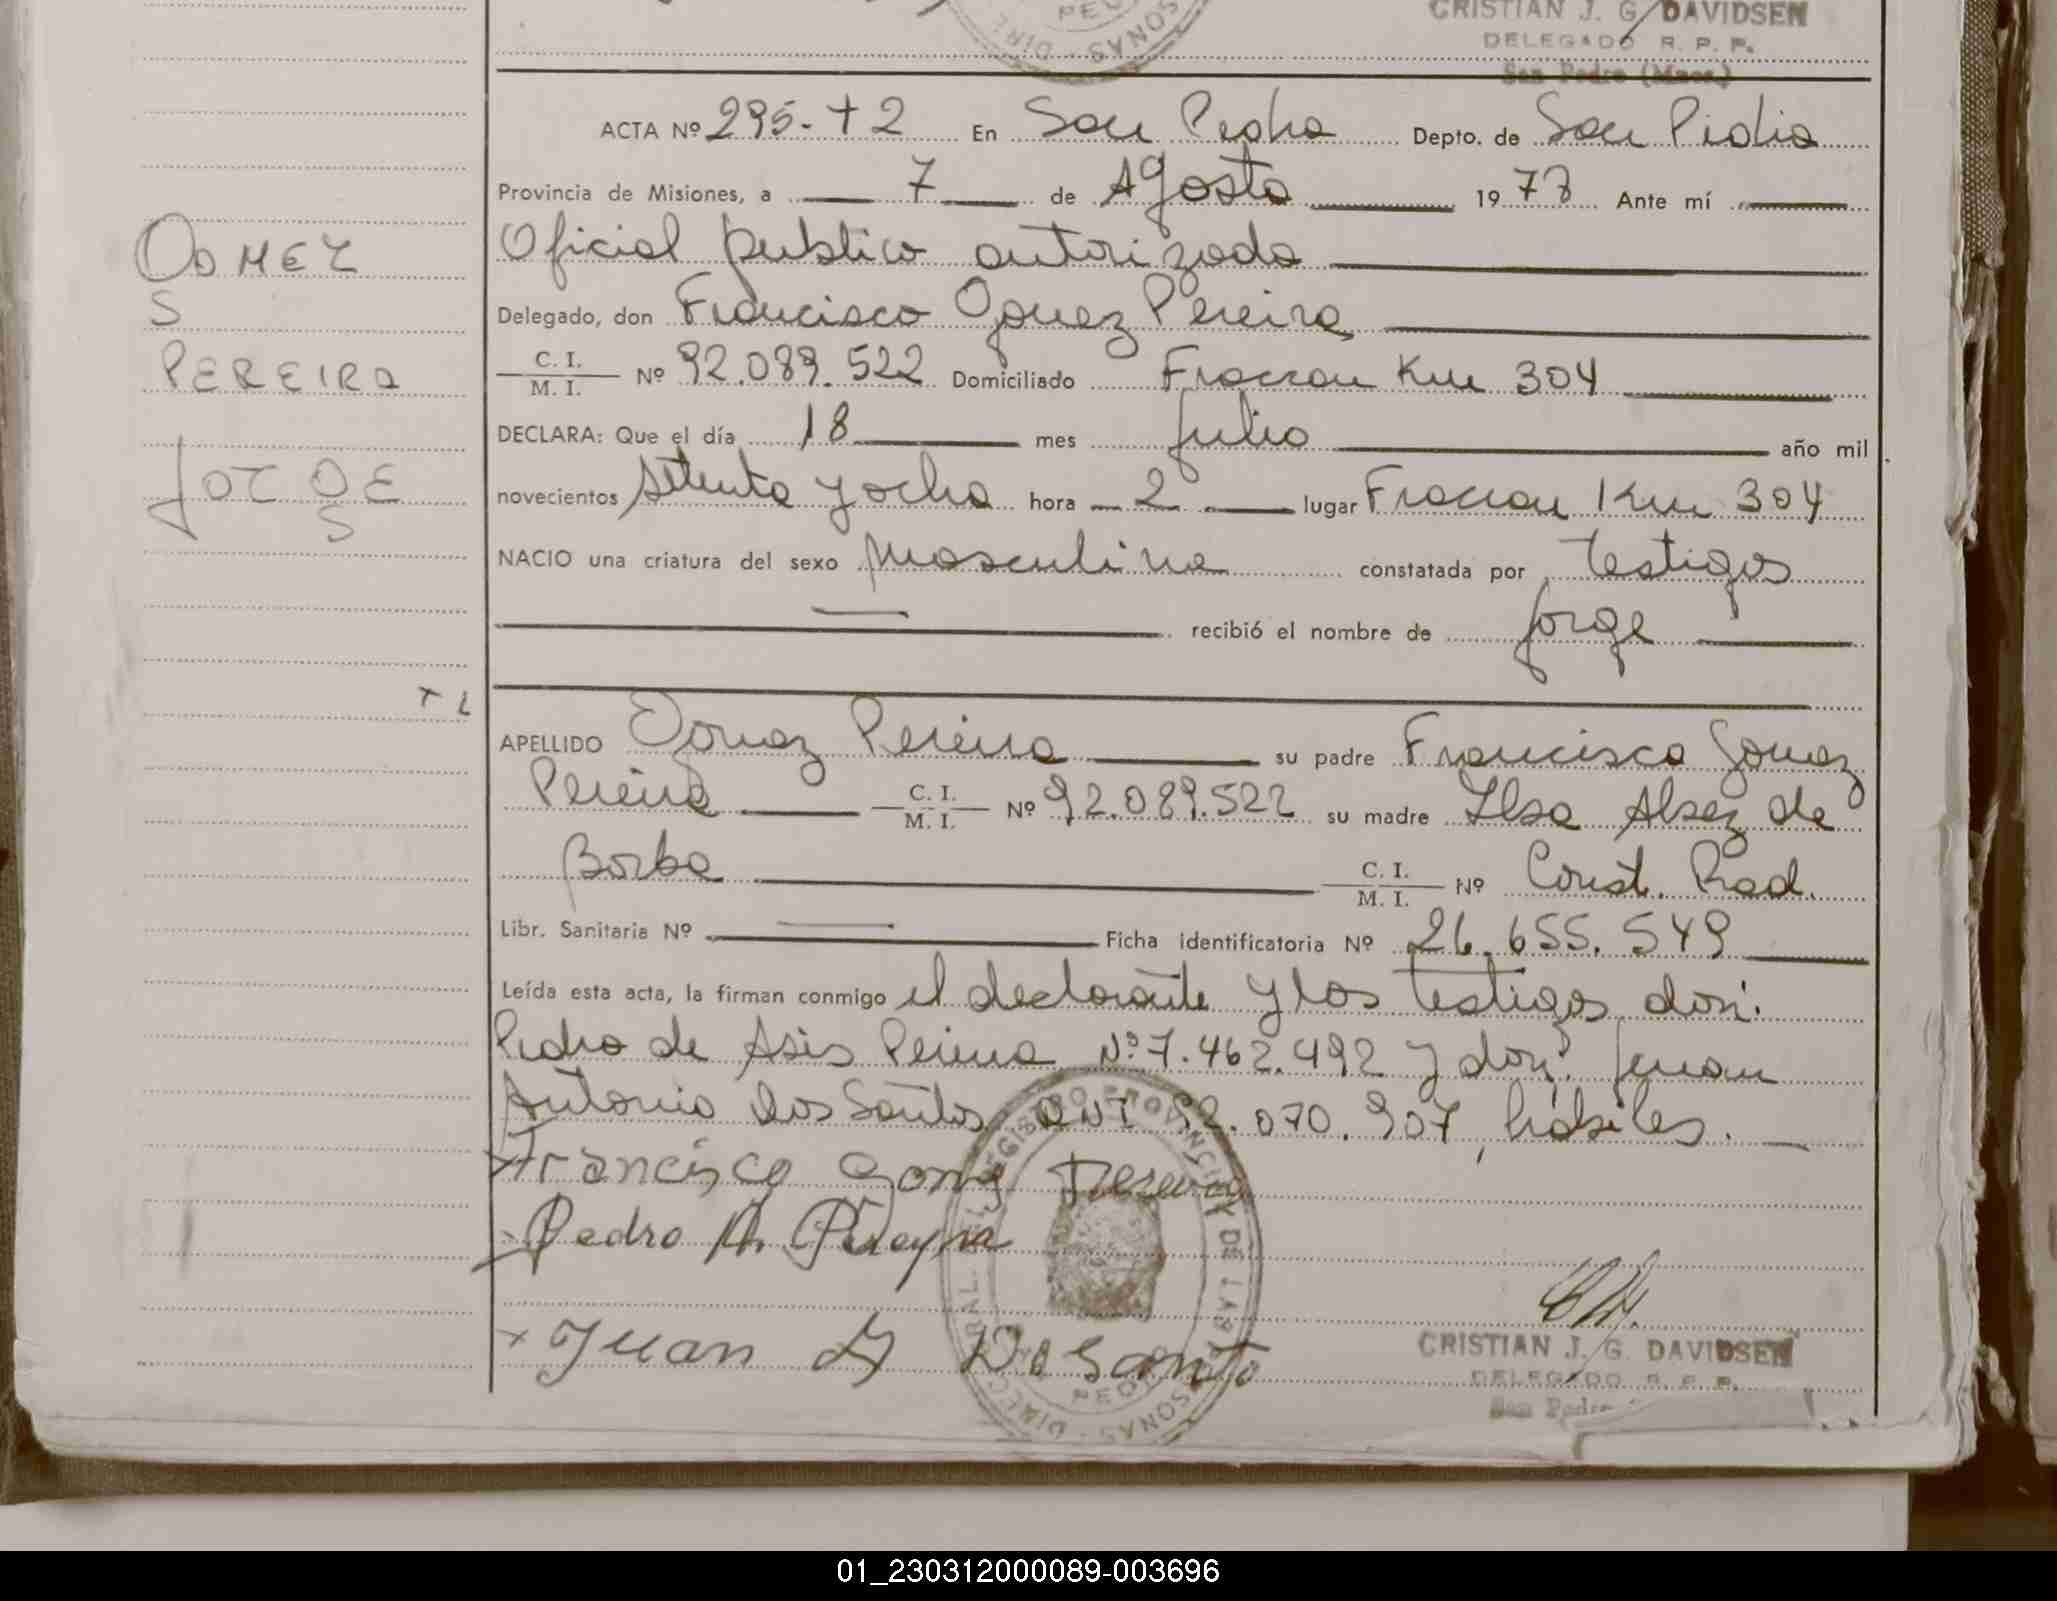 CRISTIAN J. G. DAVIDSEN
DELEGADO R. P. P.
San Pedro (Mnes.)
ACTA Nº 295-T2 En San Pedro Depto. de San Pedro
Provincia de Misiones, a 7 de Agosto 1978 Ante mí
Oficial publico autorizado
Delegado, don Francisco Gomez Pereira
C. I.
M. I. Nº 92.089.522 Domiciliado Fracran Km 304
DECLARA: Que el día 18 mes Julio año mil
novecientos setenta y ocho hora 2º lugar Fracran Km 304
NACIO una criatura del sexo masculino constatada por testigos
recibió el nombre de Jorge
GOMEZ
S
PEREIRA
JORGE
S
T 2
APELLIDO Gomez Pereira su padre Francisco Gomez
Pereira C. I. M. I. Nº 92.089.522 su madre Ilsa Alsez de
Borba C. I. M. I. Nº Const. Rad.
Libr. Sanitaria Nº Ficha identificatoria Nº 26.655.549
Leída esta acta, la firman conmigo el declarante y los testigos don:
Pedro de Asis Pereira Nº 7.462.492 y don: Juan
Antonio dos Santos DNI 92.070.907, hábiles.
Francisco Gomez Pereira
Pedro A. Pereyra
x Juan D Dosanto
REGISTRO PROVINCIAL DE LAS PERSONAS
CRISTIAN J. G. DAVIDSEN
DELEGADO R. P. P.
San Pedro
01_230312000089-003696